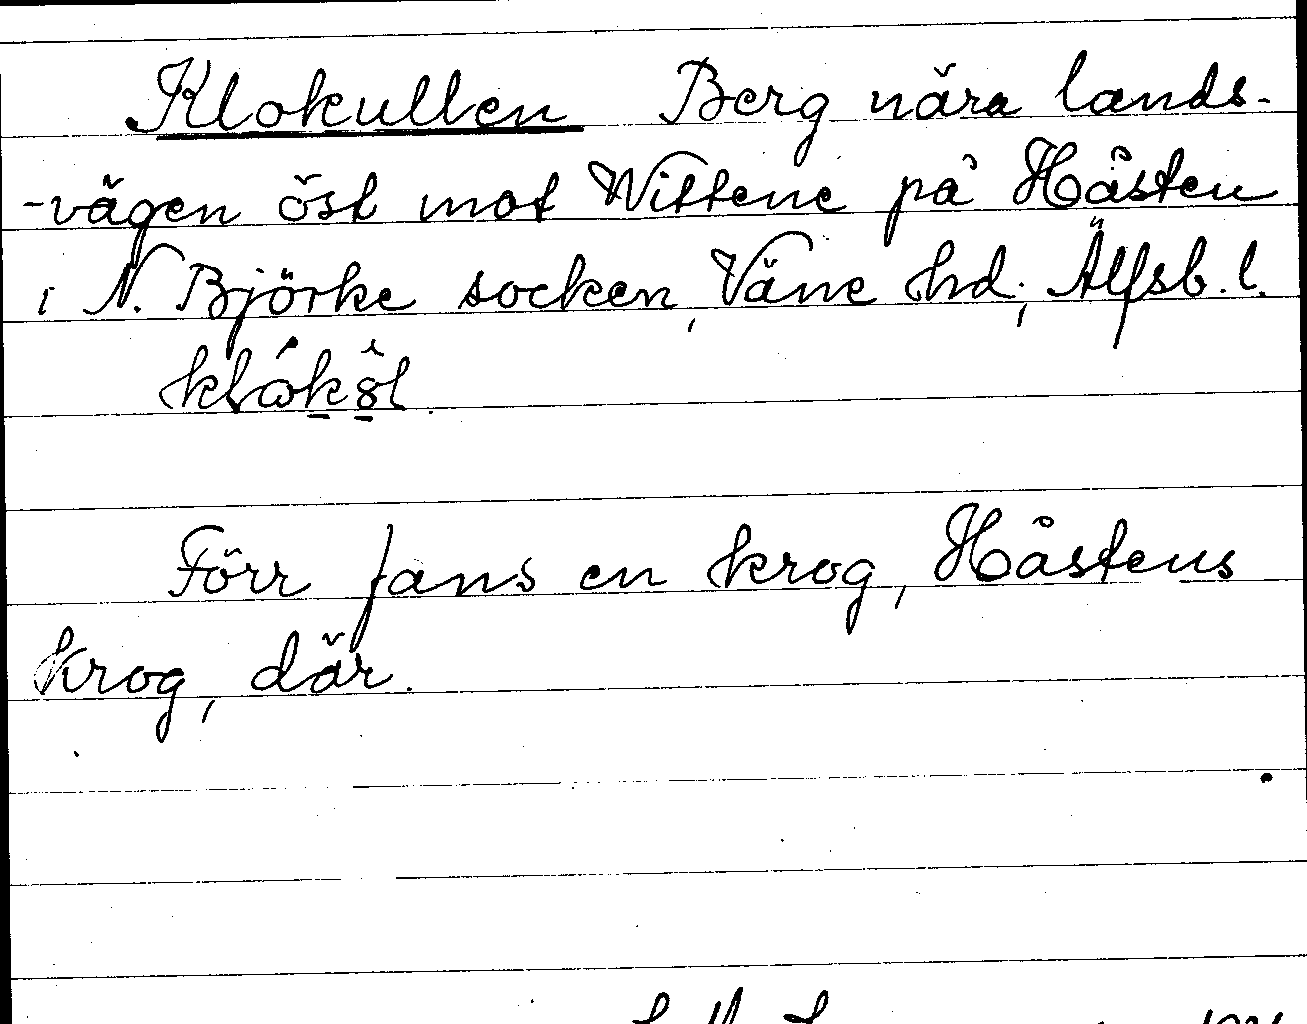 Klokullen Berg nära lands-
-vägen öst mot Wittene på Håsten
i N. Björke socken, Väne hd; Älfsb. l.
Förr fans en krog, Håstens
krog, där.